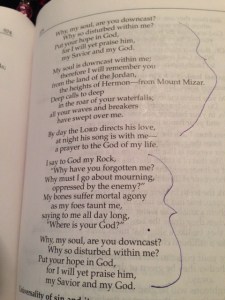 Why, my soul, are you downcast?
Why so disturbed within me?
Put your hope in God,
for I will yet praise him,
my Savior and my God.
My soul is downcast within me;
therefore I will remember you
from the land of the Jordan,
the heights of Hermon—from Mount Mizar.
Deep calls to deep
in the roar of your waterfalls;
all your waves and breakers
have swept over me.
By day the LORD directs his love,
at night his song is with me—
a prayer to the God of my life.
I say to God my Rock,
"Why have you forgotten me?
Why must I go about mourning,
oppressed by the enemy?"
My bones suffer mortal agony
as my foes taunt me,
saying to me all day long,
"Where is your God?"
Why, my soul, are you downcast?
Why so disturbed within me?
Put your hope in God,
for I will yet praise him,
my Savior and my God.
of sin and